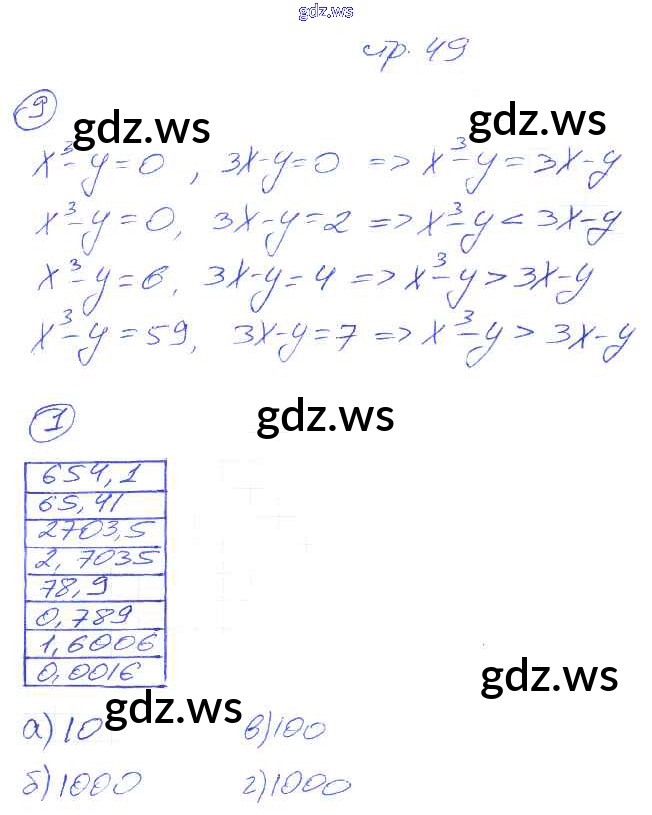 gdz.ws
стр. 49
9
gdz.ws gdz.ws
x³-y=0, 3x-y=0 => x³-y=3x-y
x³-y=0, 3x-y=2 => x³-y<3x-y
x³-y=6, 3x-y=4 => x³-y>3x-y
x³-y=59, 3x-y=7 => x³-y>3x-y
1
gdz.ws
654,1
65,41
2703,5
2,7035
78,9
0,789
1,6006
0,0016
gdz.ws
gdz.ws
а) 10 в) 100
б) 1000 г) 1000